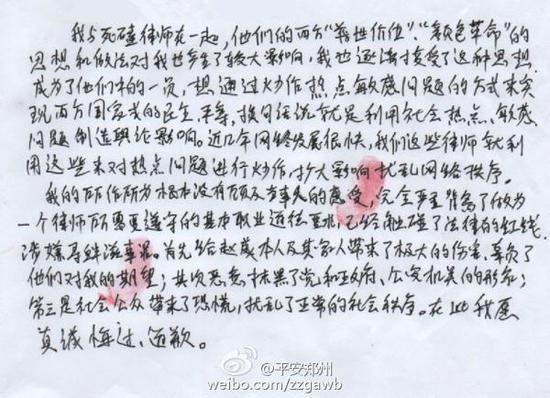 我与死磕律师在一起,他们的西方“普世价值”、“颜色革命”的
思想和做法对我也产生了较大影响,我也逐渐接受了这种思想,
成为了他们中的一员,想通过炒作热点敏感问题的方式来实
现西方国家式的民主、平等,换句话说就是利用社会热点、敏感
问题制造舆论影响。近几年网络发展很快,我们这些律师就利
用这些来对热点问题进行炒作,扩大影响,扰乱网络秩序。
我的所作所为根本没有顾及当事人的感受,完全严重背离了做为
一个律师所需要遵守的基本职业道德要求,已经触碰了法律的红线,
涉嫌寻衅滋事罪。首先给赵威本人及其家人带来了极大的伤害,辜负了
他们对我的期望;其次恶意抹黑了党和政府、公安机关的形象;
第三是社会公众带来了恐慌,扰乱了正常的社会秩序。在此我愿
真诚悔过、道歉。
@平安郑州
weibo.com/zzgawb